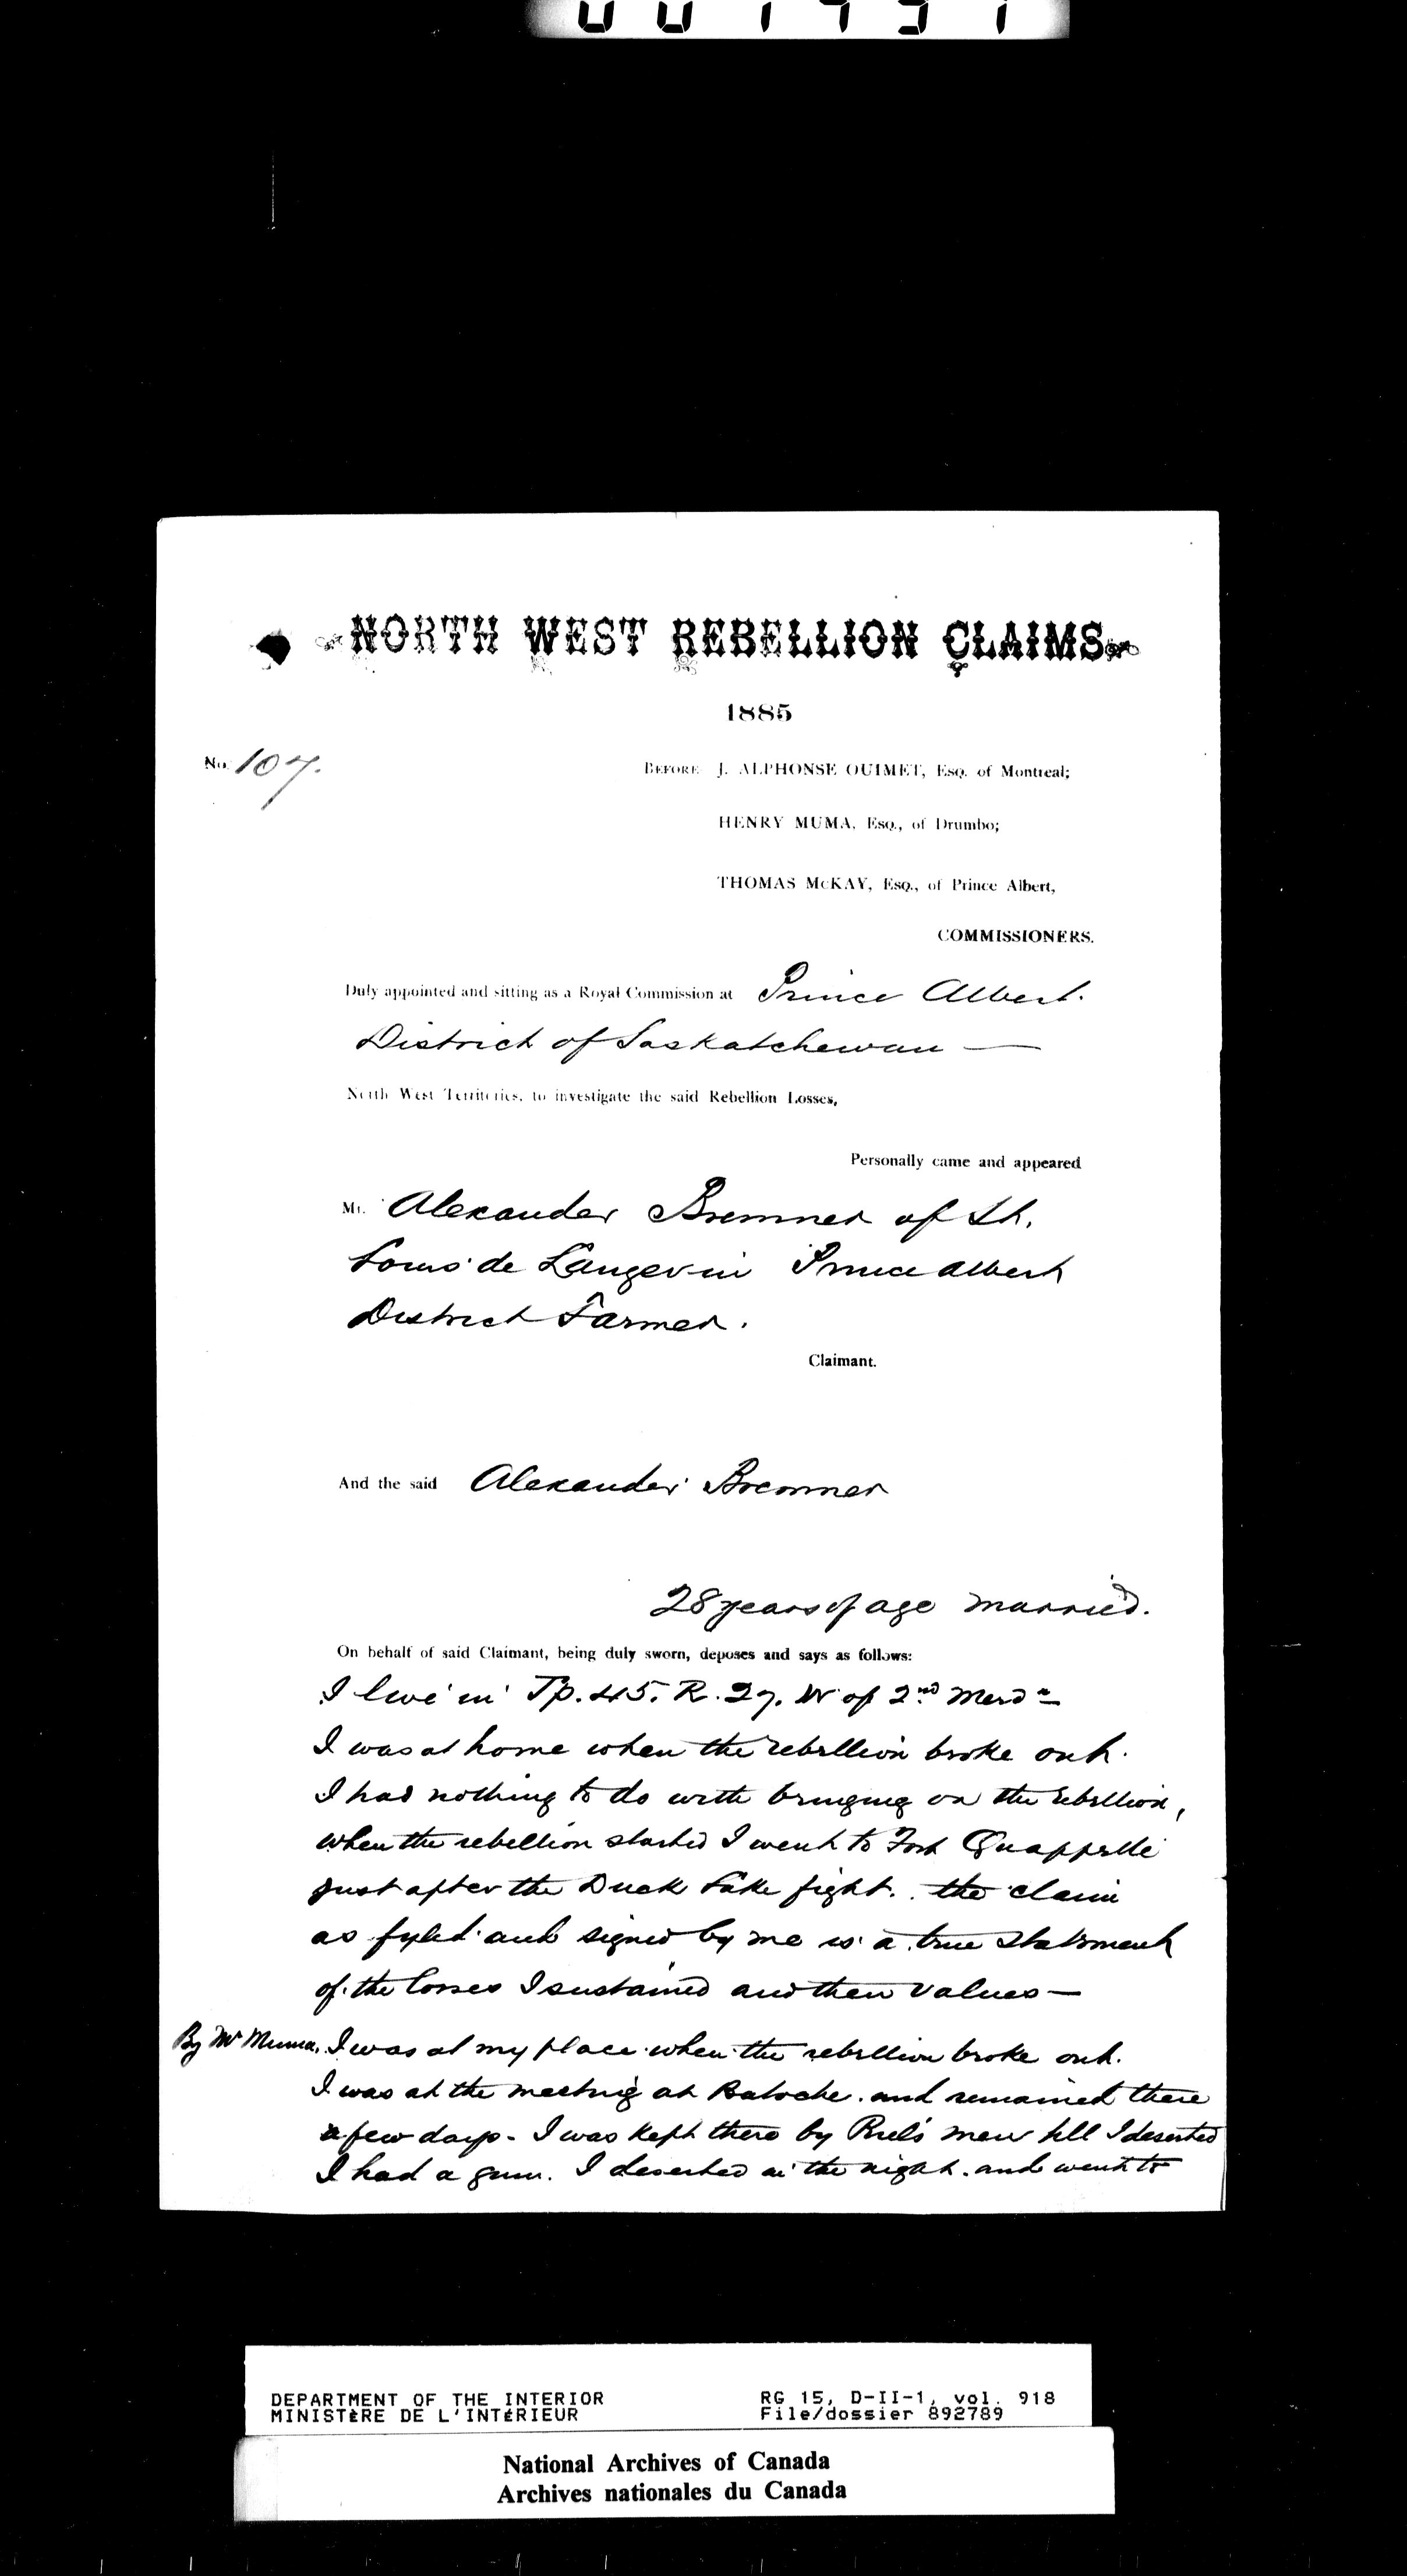 NORTH WEST REBELLION CLAIMS
1885
No. 107.
BEFORE J. ALPHONSE OUIMET, Esq. of Montreal;
HENRY MUMA, Esq., of Drumbo;
THOMAS McKAY, Esq., of Prince Albert,
COMMISSIONERS.
Duly appointed and sitting as a Royal Commission at Prince Albert.
District of Saskatchewan —
North West Territories, to investigate the said Rebellion Losses,
Personally came and appeared
Mr. Alexander Bremner of St.
Louis de Langevin Prince Albert
District Farmer.
Claimant.
And the said Alexander Bremner
28 years of age married.
On behalf of said Claimant, being duly sworn, deposes and says as follows:
I live in Tp. 45. R. 27. W of 2nd Merdn
I was at home when the rebellion broke out.
I had nothing to do with bringing on the rebellion,
when the rebellion started I went to Fort Quappelle
just after the Duck Lake fight. the claim
as fyled and signed by me is a true statement
of the losses I sustained and their values —
By Mr Muma, I was at my place when the rebellion broke out.
I was at the meeting at Batoche. and remained there
a few days - I was kept there by Riel's men till I deserted
I had a gun. I deserted in the night. and went to
DEPARTMENT OF THE INTERIOR
MINISTÈRE DE L'INTÉRIEUR
RG 15, D-II-1, vol. 918
File/dossier 892789
National Archives of Canada
Archives nationales du Canada